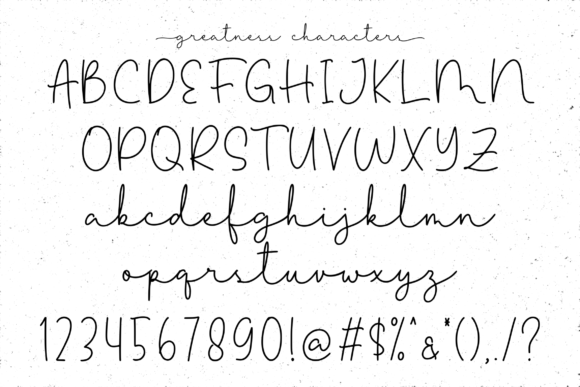 greatness characters
ABCDEFGHIJKLMN
OPQRSTUVWXYZ
abcdefghijklmn
opqrstuvwxyz
1234567890!@#$%^&*(),./?